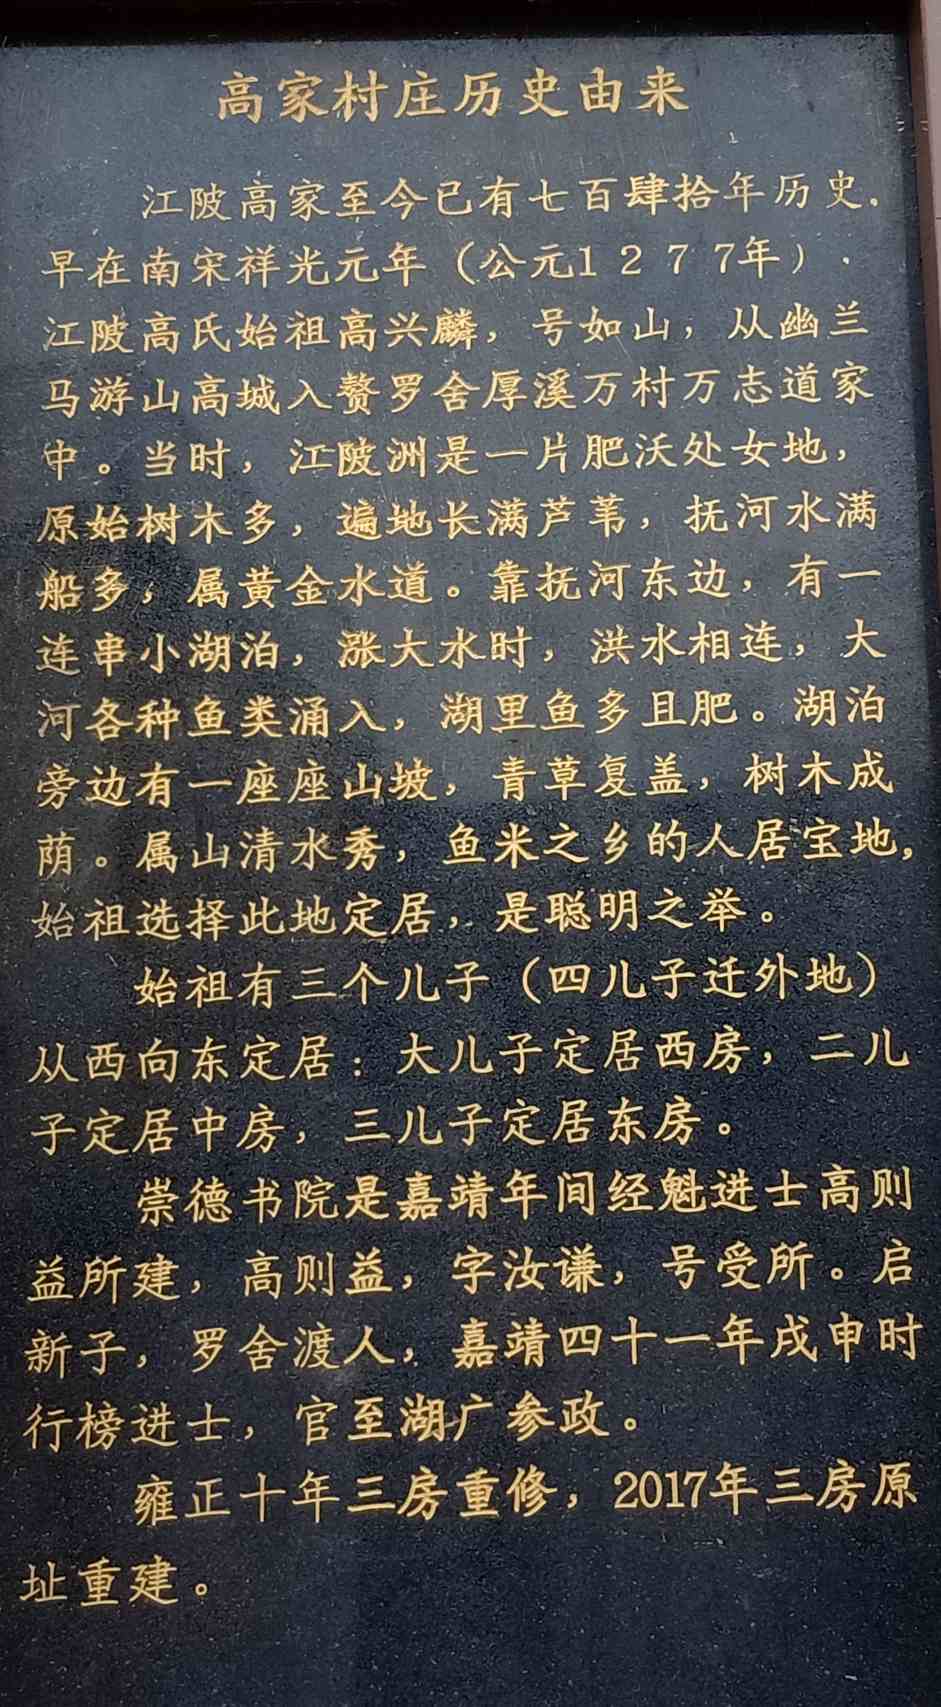 高家村庄历史由来
江陂高家至今已有七百肆拾年历史.
早在南宋祥光元年（公元1277年）.
江陂高氏始祖高兴麟，号如山，从幽兰
马游山高城入赘罗舍厚溪万村万志道家
中。当时，江陂洲是一片肥沃处女地，
原始树木多，遍地长满芦苇，抚河水满
船多，属黄金水道。靠抚河东边，有一
连串小湖泊，涨大水时，洪水相连，大
河各种鱼类涌入，湖里鱼多且肥。湖泊
旁边有一座座山坡，青草复盖，树木成
荫。属山清水秀，鱼米之乡的人居宝地，
始祖选择此地定居，是聪明之举。
始祖有三个儿子（四儿子迁外地）
从西向东定居：大儿子定居西房，二儿
子定居中房，三儿子定居东房。
崇德书院是嘉靖年间经魁进士高则
益所建，高则益，字汝谦，号受所。启
新子，罗舍渡人，嘉靖四十一年戊申时
行榜进士，官至湖广参政。
雍正十年三房重修，2017年三房原
址重建。